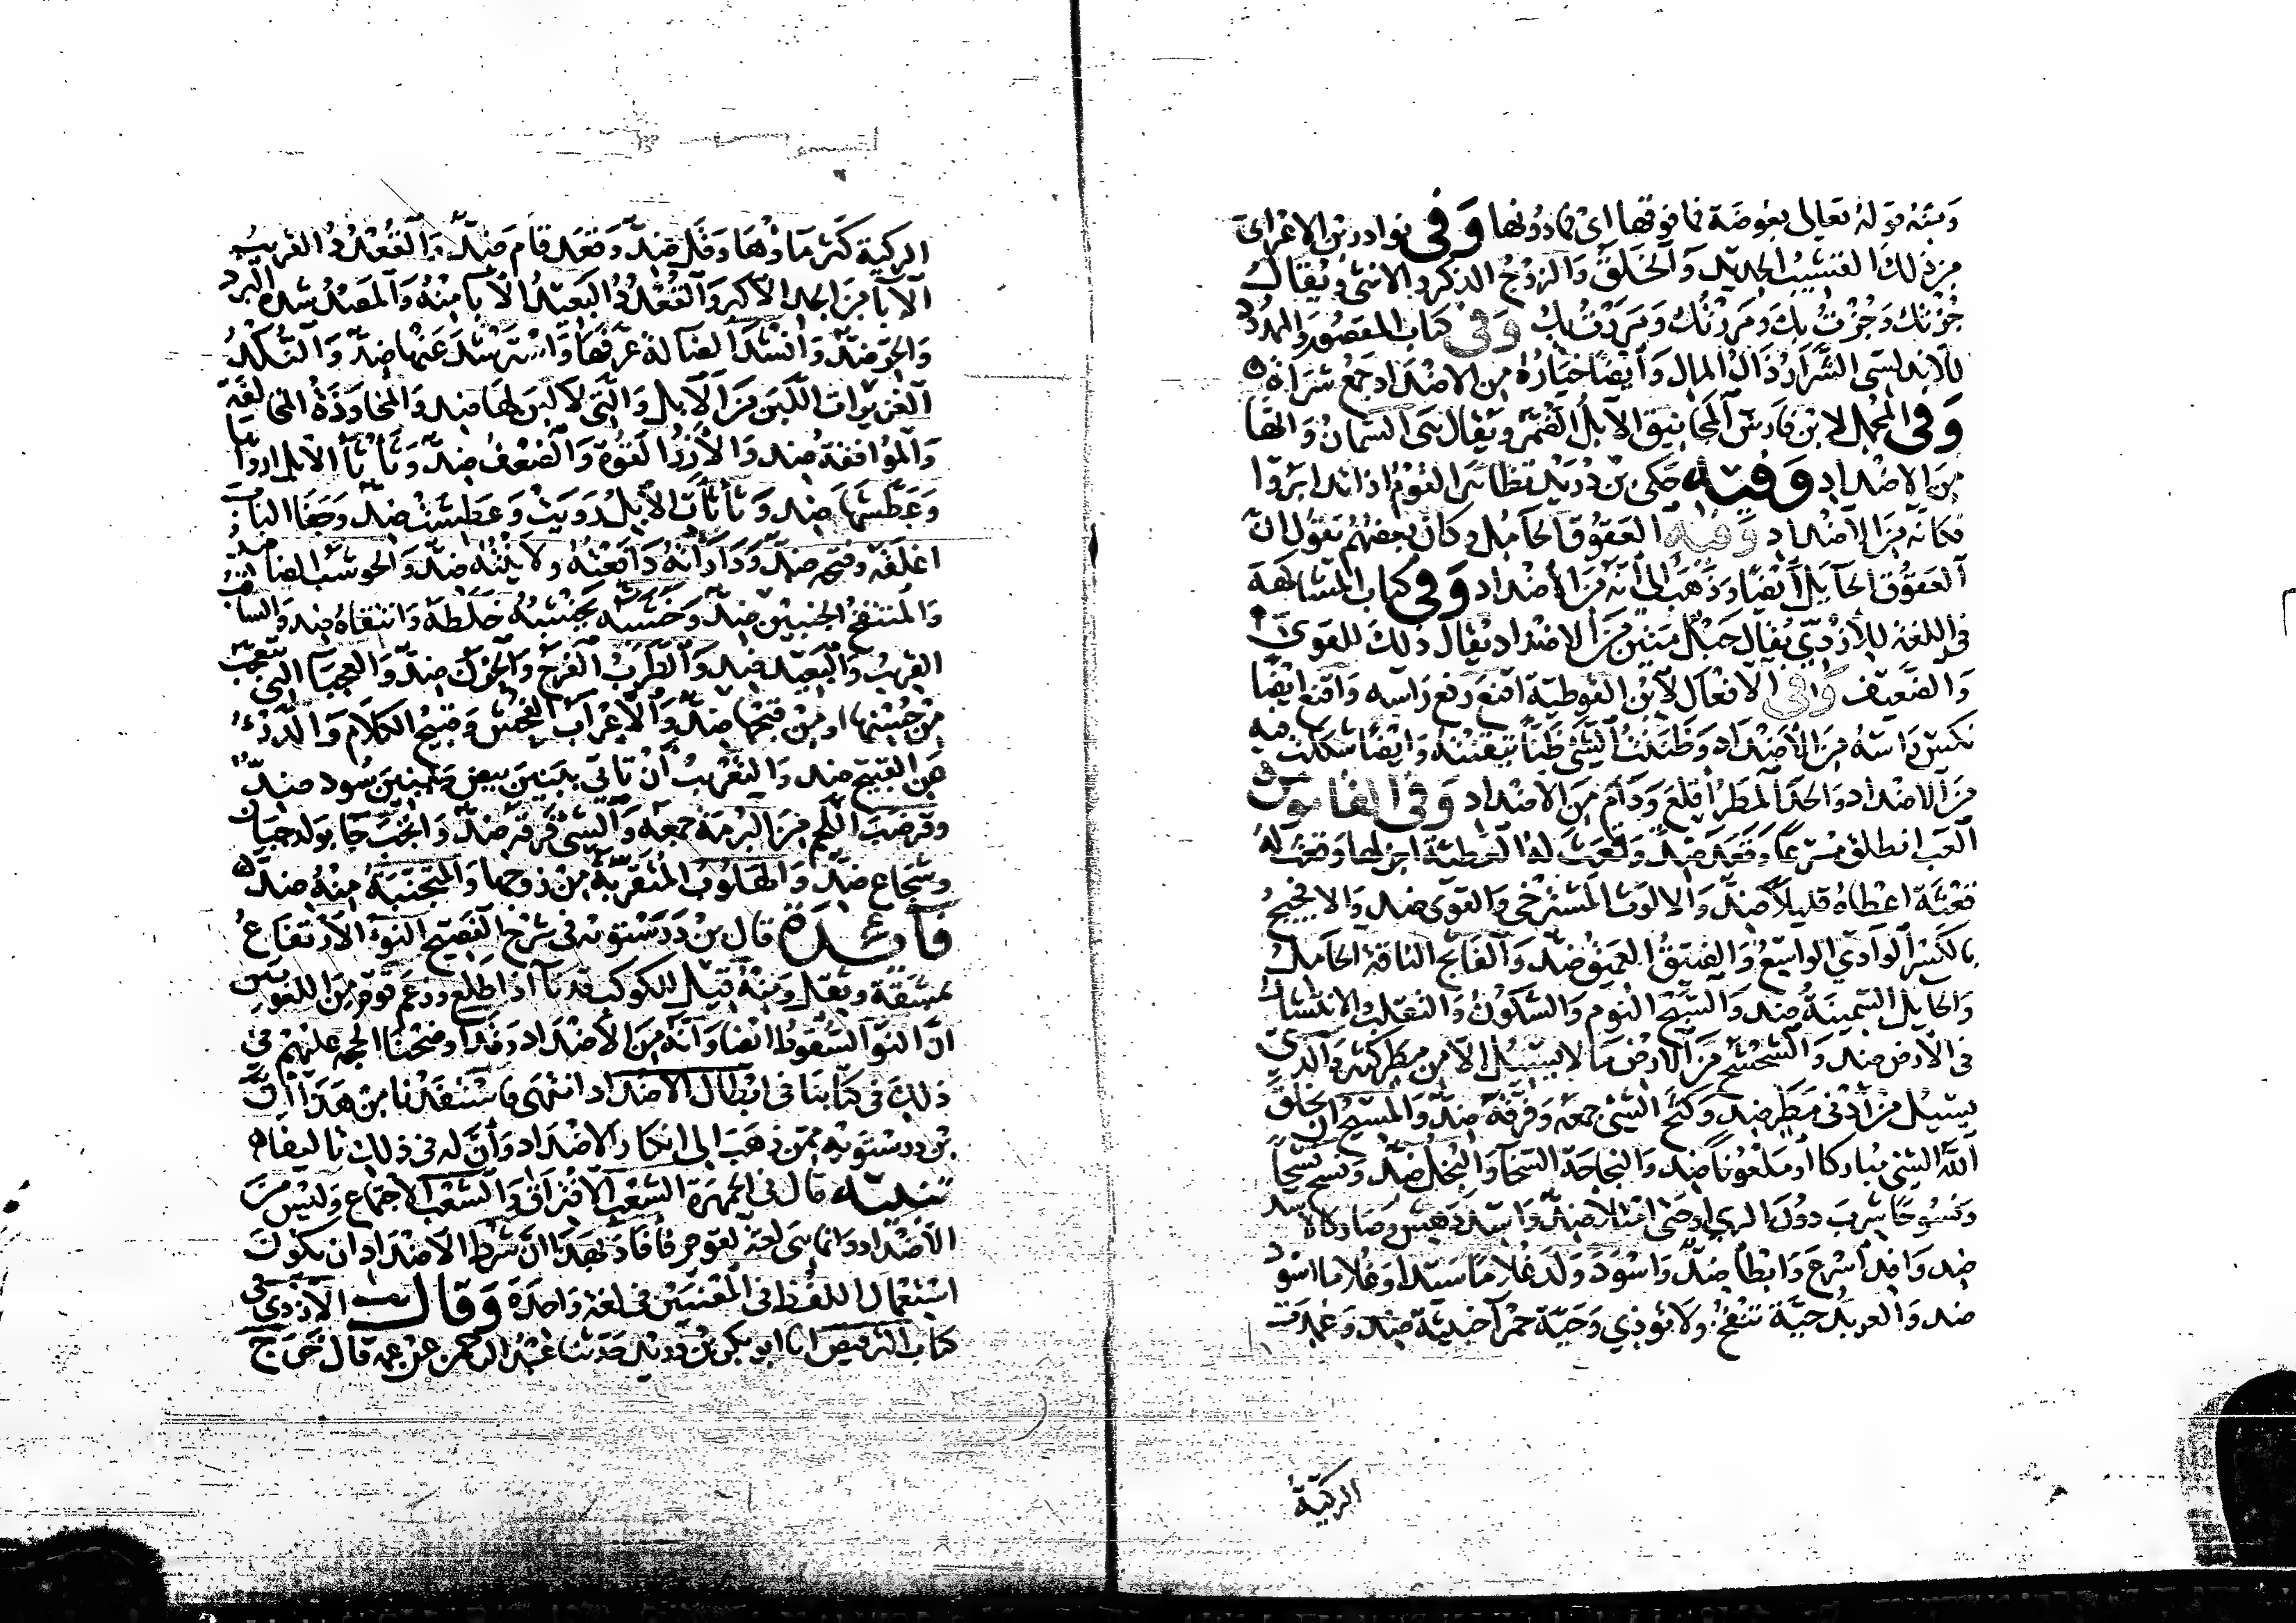 ومنه قوله تعالى بعوضة فما فوقها اي فما دونها وفي نوادر بن الاعرابي
من ذلك القشيب الجديد والخلق والزوج الذكر والانثى ويقال
جزتك وجزت بك ومررتك ومررت بك وفي كتاب المقصور والممدود
للاندلسي الشراة رذال المال وأيضا خياره من الاضداد جمع شراة
وفي المجمل لابن فارس المجانيق الابل الضمر ويقال هي السمان وانها
من الاضداد وفيه حكى بن دريد تظاهر القوم اذا تدابروا
فكانه من الاضداد وفيه العقوق الحامل وكان بعضهم يقول ان
العقوق الحايل أيضا وذهب الى انه من الأضداد وفي كتاب المشاكهة
في اللغة للازدي يقال حبل متين من الاضداد يقال ذلك للقوي
والضعيف وفي الافعال لابن القوطية اقنع رفع راسه واقنع ايضا
نكس راسه من الاضداد وظننت الشئ ظنا تيقنته وايضا شككت فيه
من الاضداد المطر أقلع ودام من الاضداد وفي القاموس
انطلق مسرعا وقعد ضد وقعث له العطية اجزلها وقعث له
قعثة اعطاه قليلا ضد والالوث المسترخي والقوي ضد والافجيج
بالكسر الوادي الواسع والضيق العميق ضد والفاثج الناقة الحامل
والحايل السمينة ضد والسبح النوم والسكون والتقلب والانتشار
في الارض ضد والشحشح من الارض ما لا يسيل الا من مطر كثير والذي
يسيل من أدنى مطر ضد وكثح الشئ جمعه وفرقه ضد والمسيح ان يخلق
الله الشئ مباركا او ملعونا ضد والنجاحة السخا والبخل ضد ونشح نشحا
ونشوحا شرب دون الري او حتى امتلا ضد واسد دهش وصار كالاسد
ضد وافد أسرع وابطأ ضد واسود ولد غلاما سيدا وغلاما اسود
ضد والعربد حية تنفخ ولا تؤذي وحية حمرا خبيثة ضد وغمدت
الركية
الركية كثر ماؤها وقل ضد وقعد قام ضد والقعدد القريب
الآبا من الجد الاكبر والقعدد البعيد الآبا منه والمصد شدة البرد
والحر ضد وانشد الضالة عرفها واسترشد عنها ضد والنكد
الغزيرات اللبن من الابل والتي لا لبن لها ضد والمحاوذة المخالفة
والموافقة ضد والازر القوة والضعف ضد وثأثأ الابل ارواها
وعطشها ضد وثأثأت الابل رويت وعطشت ضد وجفا الباب
اغلقه وفتحه ضد ودأدأته دافعته ولاينته ضد والحوشب الضامر
والمنتفخ الجنبين ضد وخشبه يخشبه خلطه وانتقاه ضد والساقب
القريب والبعيد ضد والطرب الفرح والحزن ضد والعجبا التي يتعجب
من حسنها او من قبحها ضد والاعراب الفحش وقبيح الكلام والدرء
عن القبيح ضد والتغريب أن تاتي ببنين بيض وببنين سود ضد
وقرضب اللحم من البرمة جمعه والشئ فرقه ضد وانجب جا بولد جبان
وشجاع ضد والهلوب المتقربة من زوجها والمتجنبة منه ضد
فائدة قال بن درستويه في شرح الفصيح النوء الارتفاع
بمشقة وثقل ومنه قيل للكوكب قد نآ اذا طلع وزعم قوم من اللغويين
ان النوء السقوط ايضا وانه من الاضداد وقد اوضحنا الحجة عليهم في
ذلك في كتابنا في ابطال الاضداد انتهى فاستفدنا من هذا أن
بن درستويه ممن ذهب الى انكار الاضداد وأن له في ذلك تاليفا
تنبيه قال في الجمهرة الشعب الافتراق والشعب الاجتماع وليس من
الأضداد وانما هي لغة لقوم فأفاد بهذا ان شرط الاضداد ان يكون
استعمال اللفظ في المعنيين في لغة واحدة وقال الازدي في
كتاب الترقيص انا ابو بكر بن دريد حدثنا عبد الرحمن عن عمه قال خرج